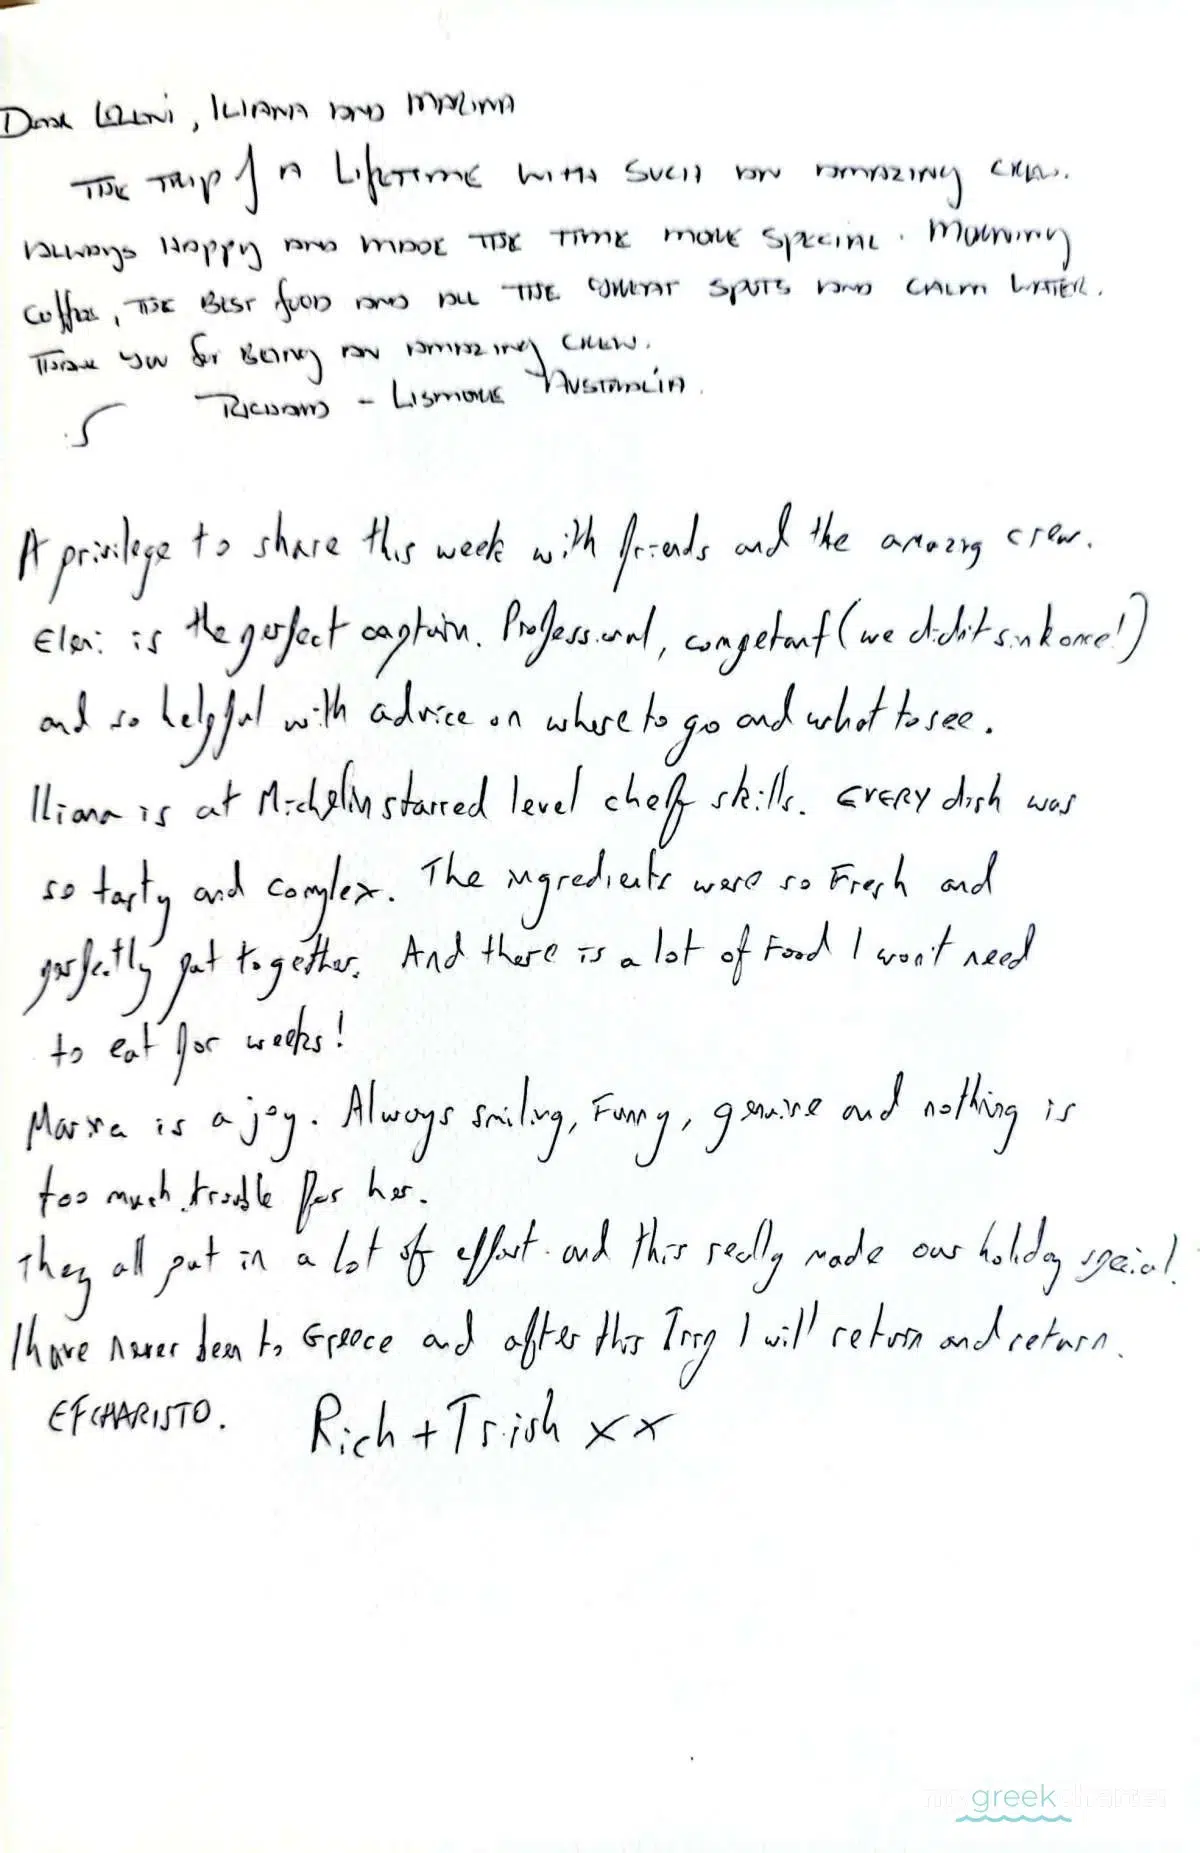 Dear Eleni, ILIANA AND MARINA
THE TRIP of A LIFETIME WITH SUCH AN AMAZING CREW.
ALWAYS HAPPY AND MADE THE TIME MORE SPECIAL. MORNING
COFFEE, THE BEST FOOD AND ALL THE GREAT SPOTS AND CALM WATER.
THANK YOU for BEING AN AMAZING CREW.
RICHARD - LISMORE AUSTRALIA.
A privilege to share this week with friends and the amazing crew.
Eleni is the perfect captain. Professional, competant (we didn't sink once!)
and so helpful with advice on where to go and what to see.
Iliana is at Michelin starred level cheff skills. EVERY dish was
so tasty and complex. The ingredients were so Fresh and
perfectly put together. And there is a lot of Food I won't need
to eat for weeks!
Marina is a joy. Always smiling, Funny, genuine and nothing is
too much trouble for her.
They all put in a lot of effort and this really made our holiday special.
I have never been to Greece and after this Trip I will return and return.
EFCHARISTO. Rich + Trish xx
my greek charter